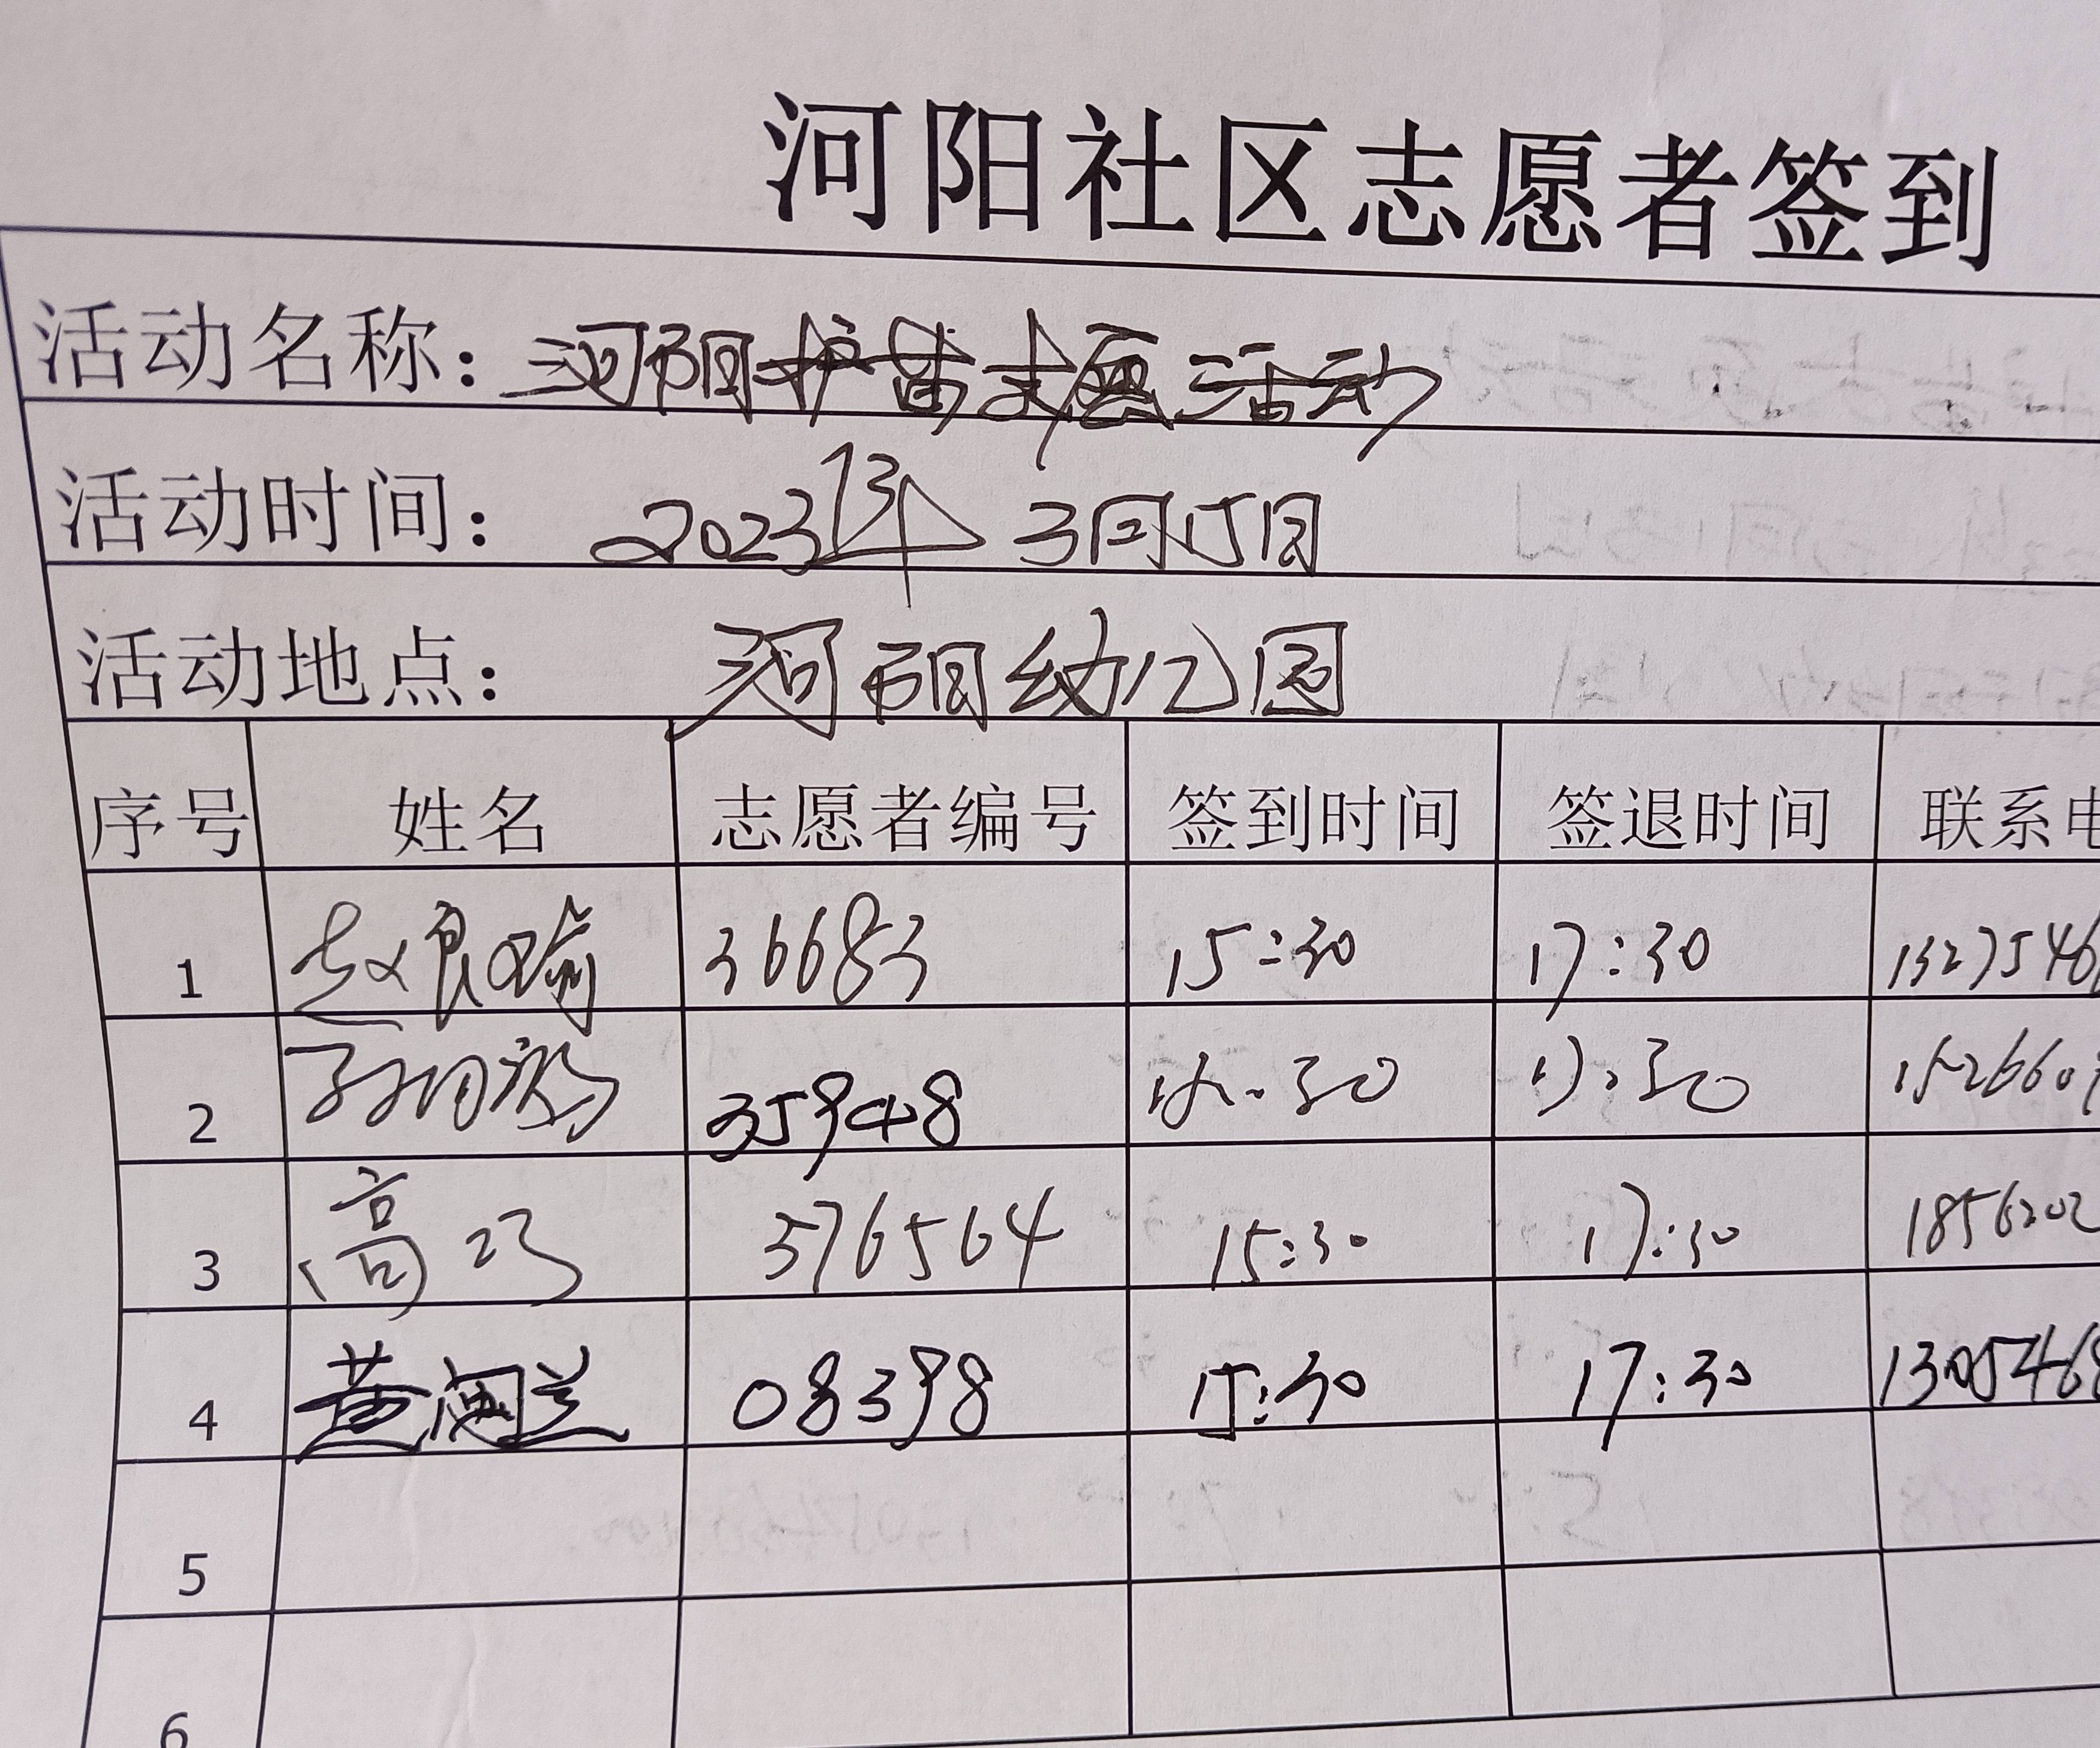 河阳社区志愿者签到
活动名称：河阳护苗志愿活动
活动时间：2023年 3月15日
活动地点：河阳幼儿园
序号 姓名 志愿者编号 签到时间 签退时间 联系电
1 赵良瑜 36683 15:30 17:30 1327546
2 35948 15:30 17:30 1526660
3 高巧 576564 15:30 17:30 1856202
4 黄海兰 08398 15:30 17:30 1305468
5
6